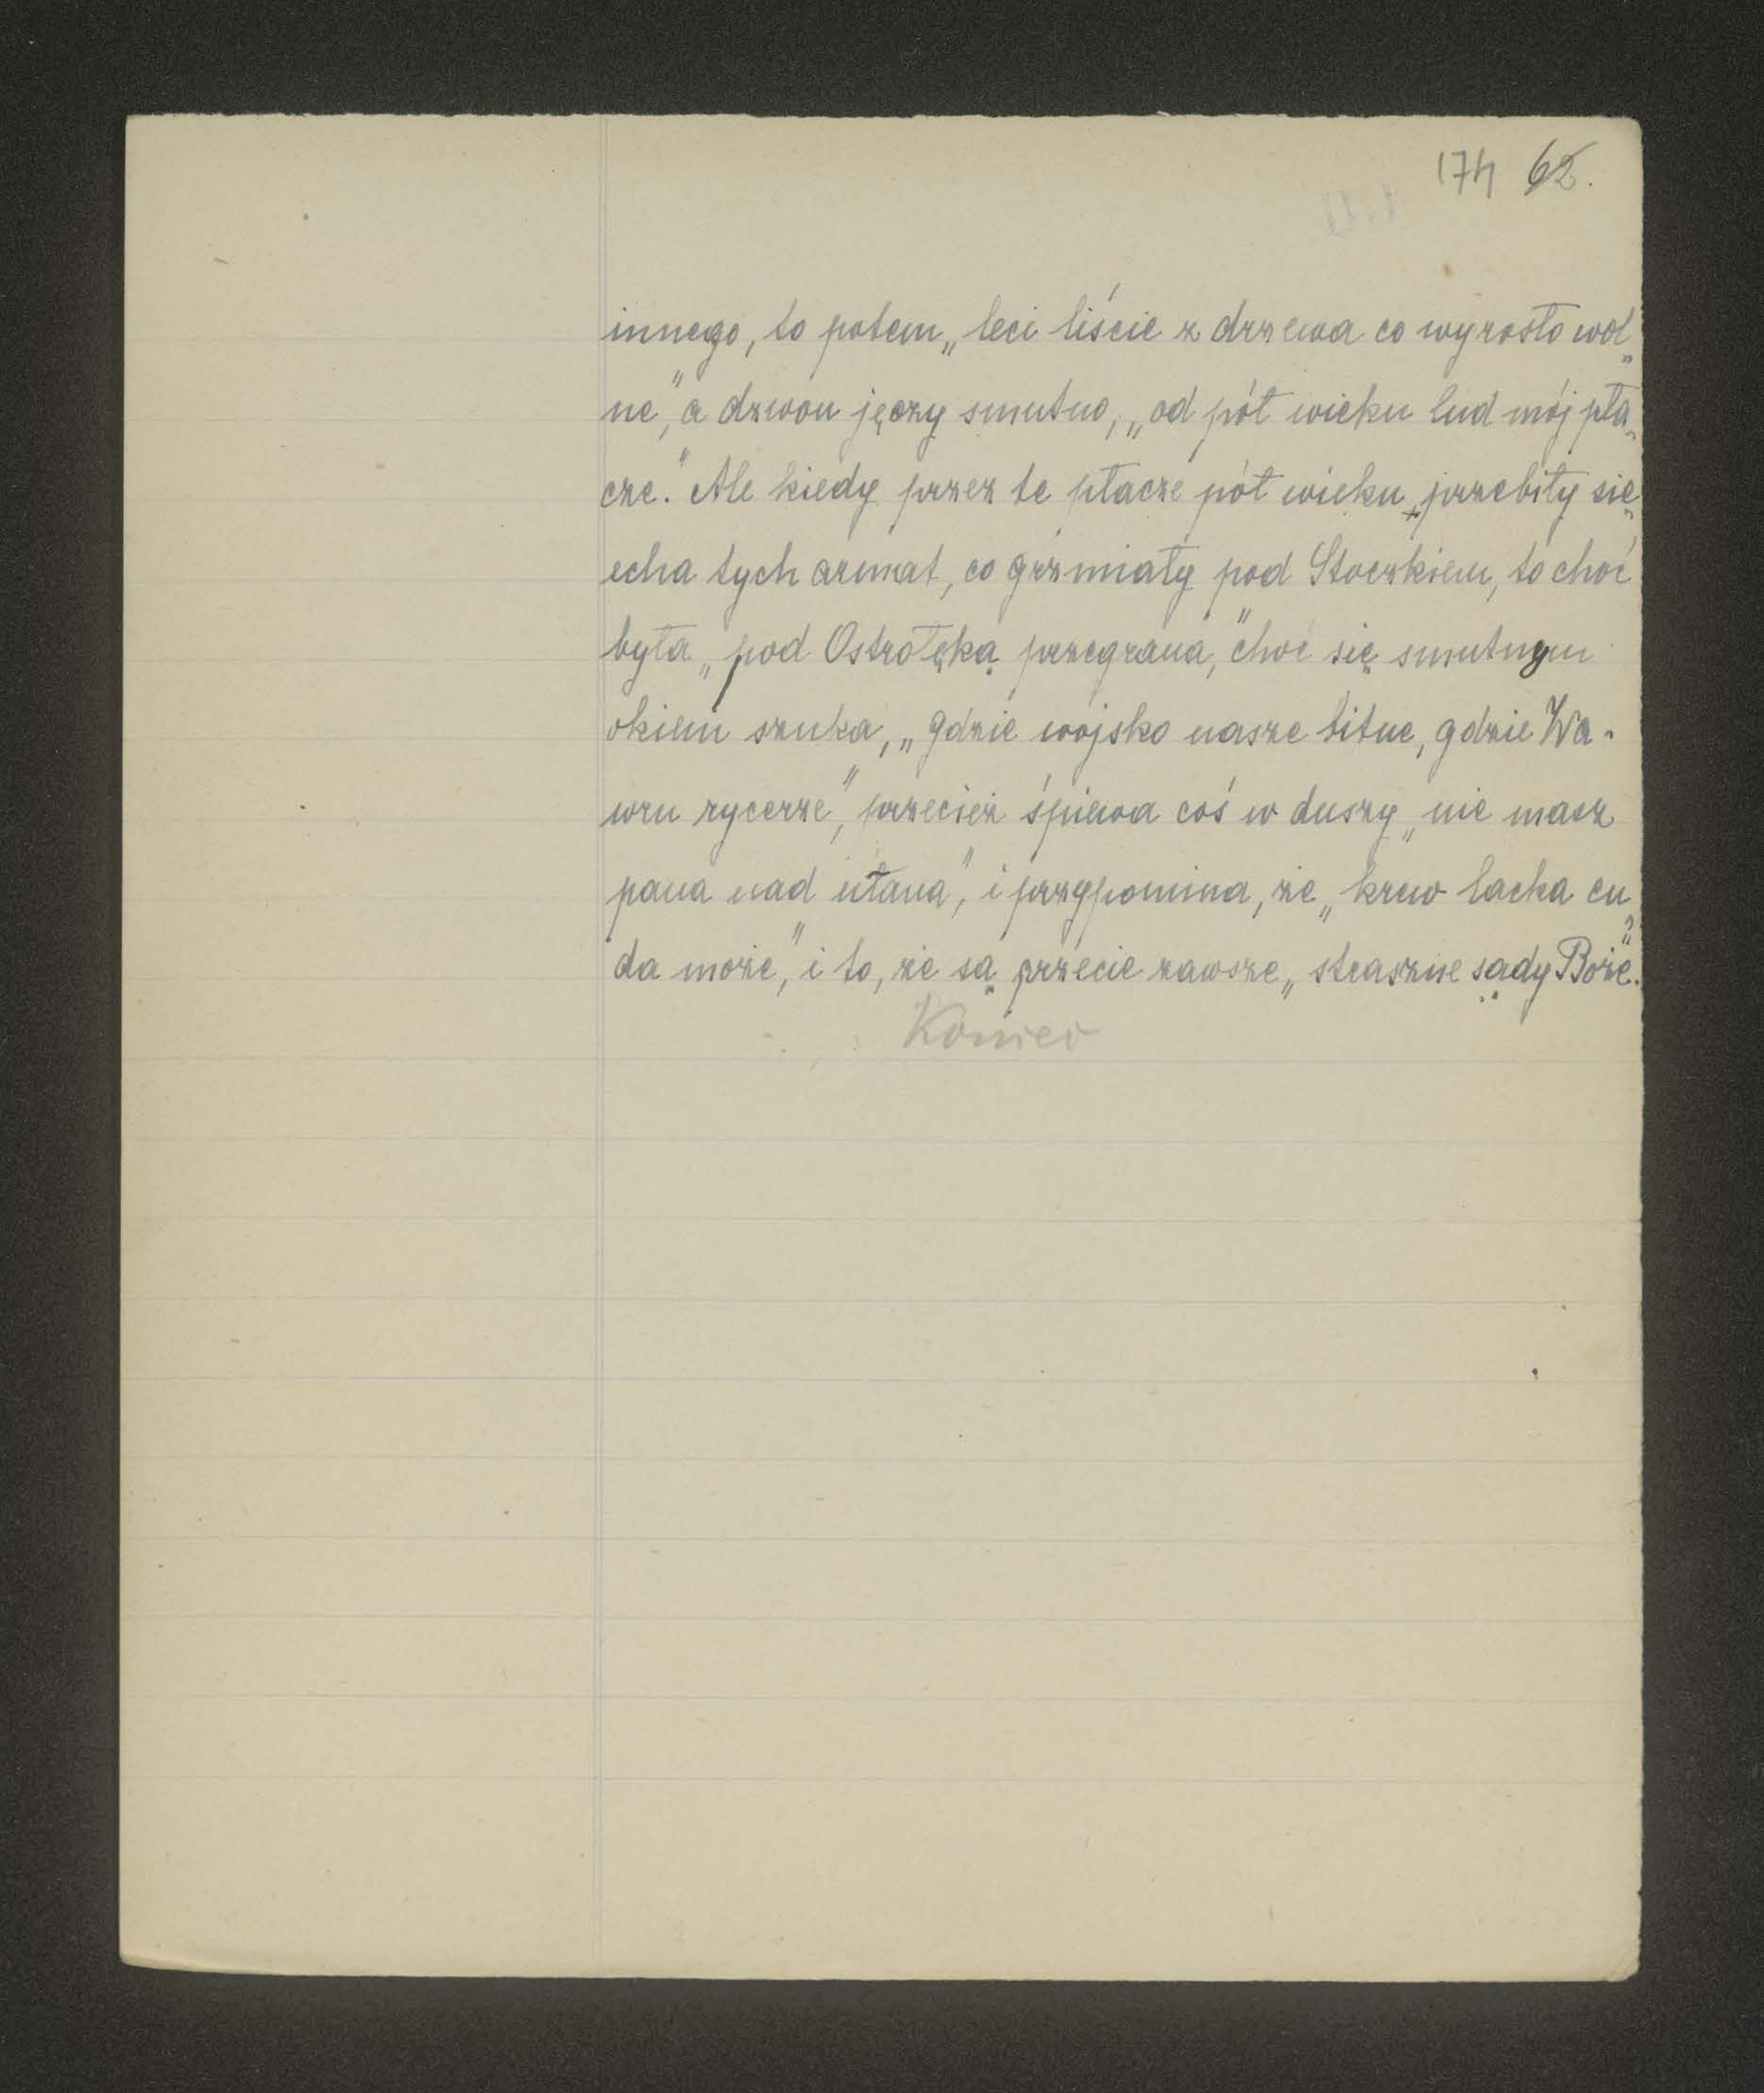 174 62.
innego, to potem „leci liście z drzewa co wyrosło wol„
ne," a dzwon jęczy smutno, „od pół wieku lud mój pła„
cze." Ale kiedy przez te płacze pół wieku przebiły się
echa tych armat, co grzmiały pod Stoczkiem, to choć
była „pod Ostrołęką przegrana," choć się smutnym
okiem szuka, „gdzie wojsko nasze bitne, gdzie Wa-
wru rycerze", przecież śpiewa coś w duszy „nie masz
pana nad ułana", i przypomina, że „krew lacka cu„
da może," i to, że są przecie zawsze „straszne sądy Boże."
Koniec